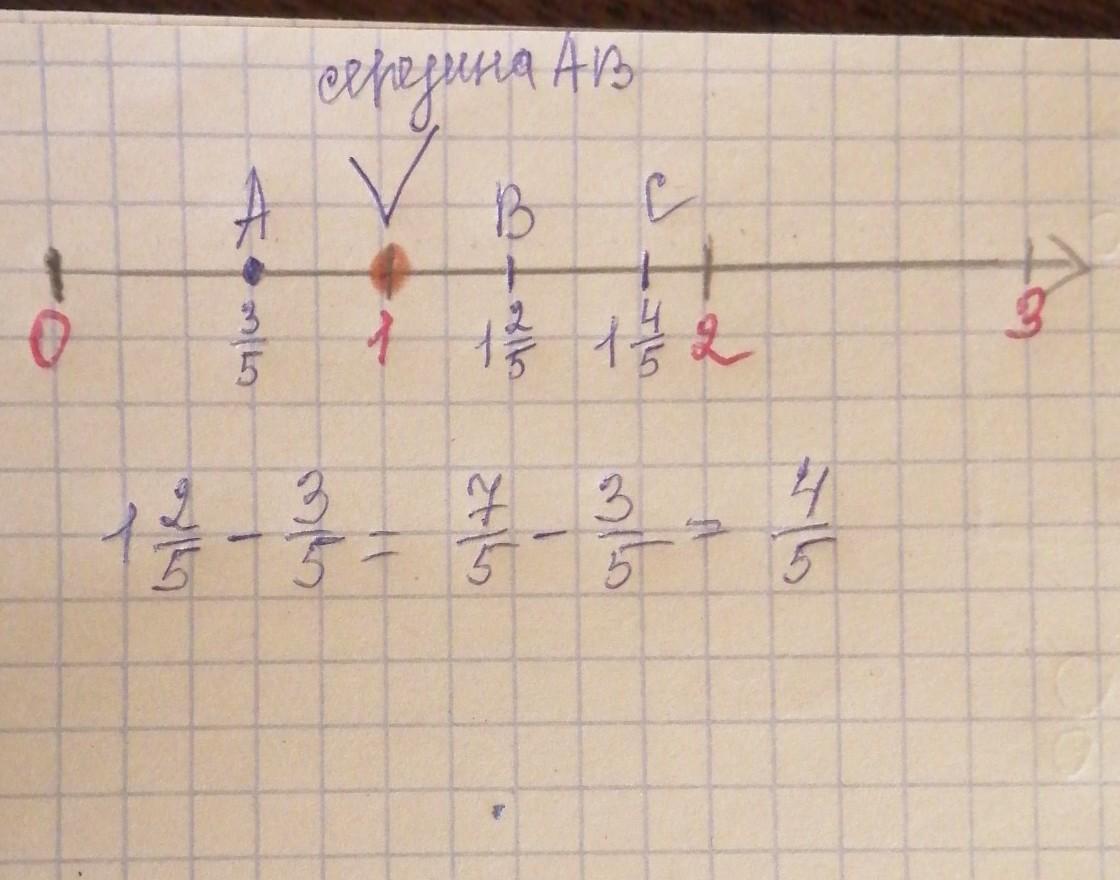 середина AB
A B C
0 3/5 1 1 2/5 1 4/5 2 3
1 2/5 - 3/5 = 7/5 - 3/5 = 4/5